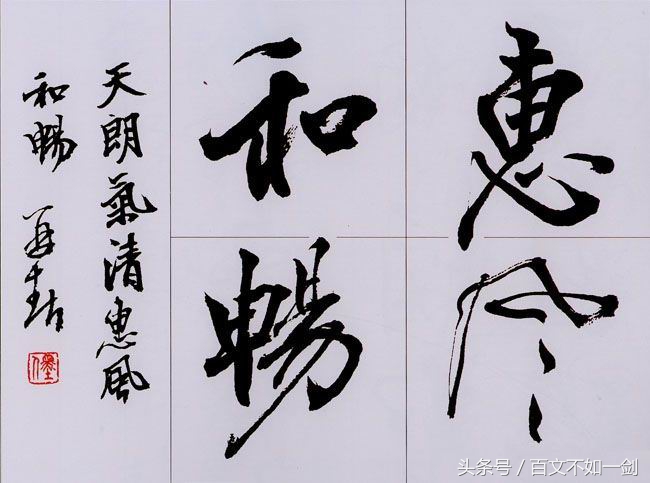 惠风
和暢
天朗氣清惠風
和暢
头条号 / 百文不如一剑